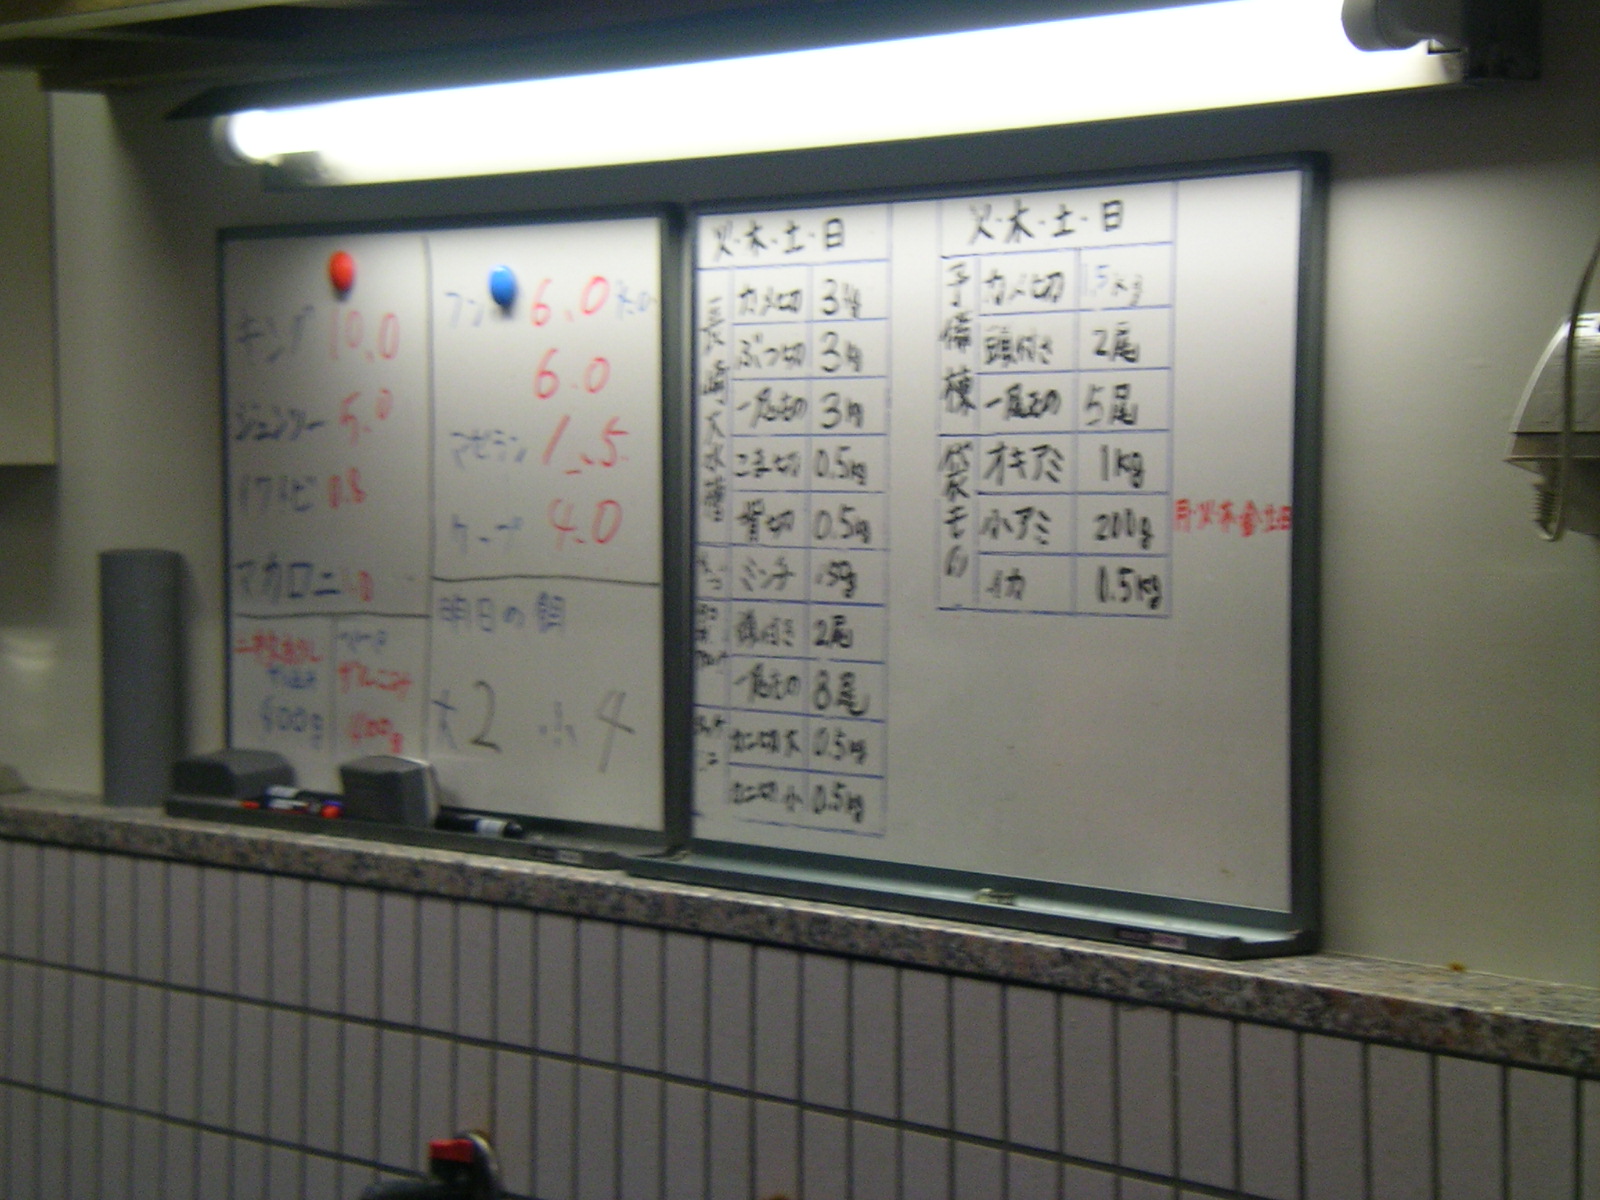 キング 10.0
ジェンツー 5.0
イワトビ 0.8
マカロニ
400g
400g
フン 6.0
6.0
マゼラン 1.5
ケープ 4.0
明日の餌
大2 小4
火・木・土・日
長崎大水槽
カメ切 3kg
ぶつ切 3kg
一尾もの 3kg
こま切 0.5kg
背切 0.5kg
ミンチ
頭付き 2尾
一尾もの 8尾
カニ切大 0.5kg
カニ切小 0.5kg
火・木・土・日
予備棟
カメ切 1.5kg
頭付き 2尾
一尾もの 5尾
袋モの
オキアミ 1kg
小アミ 200g
月・火・木・金・土・日
イカ 0.5kg